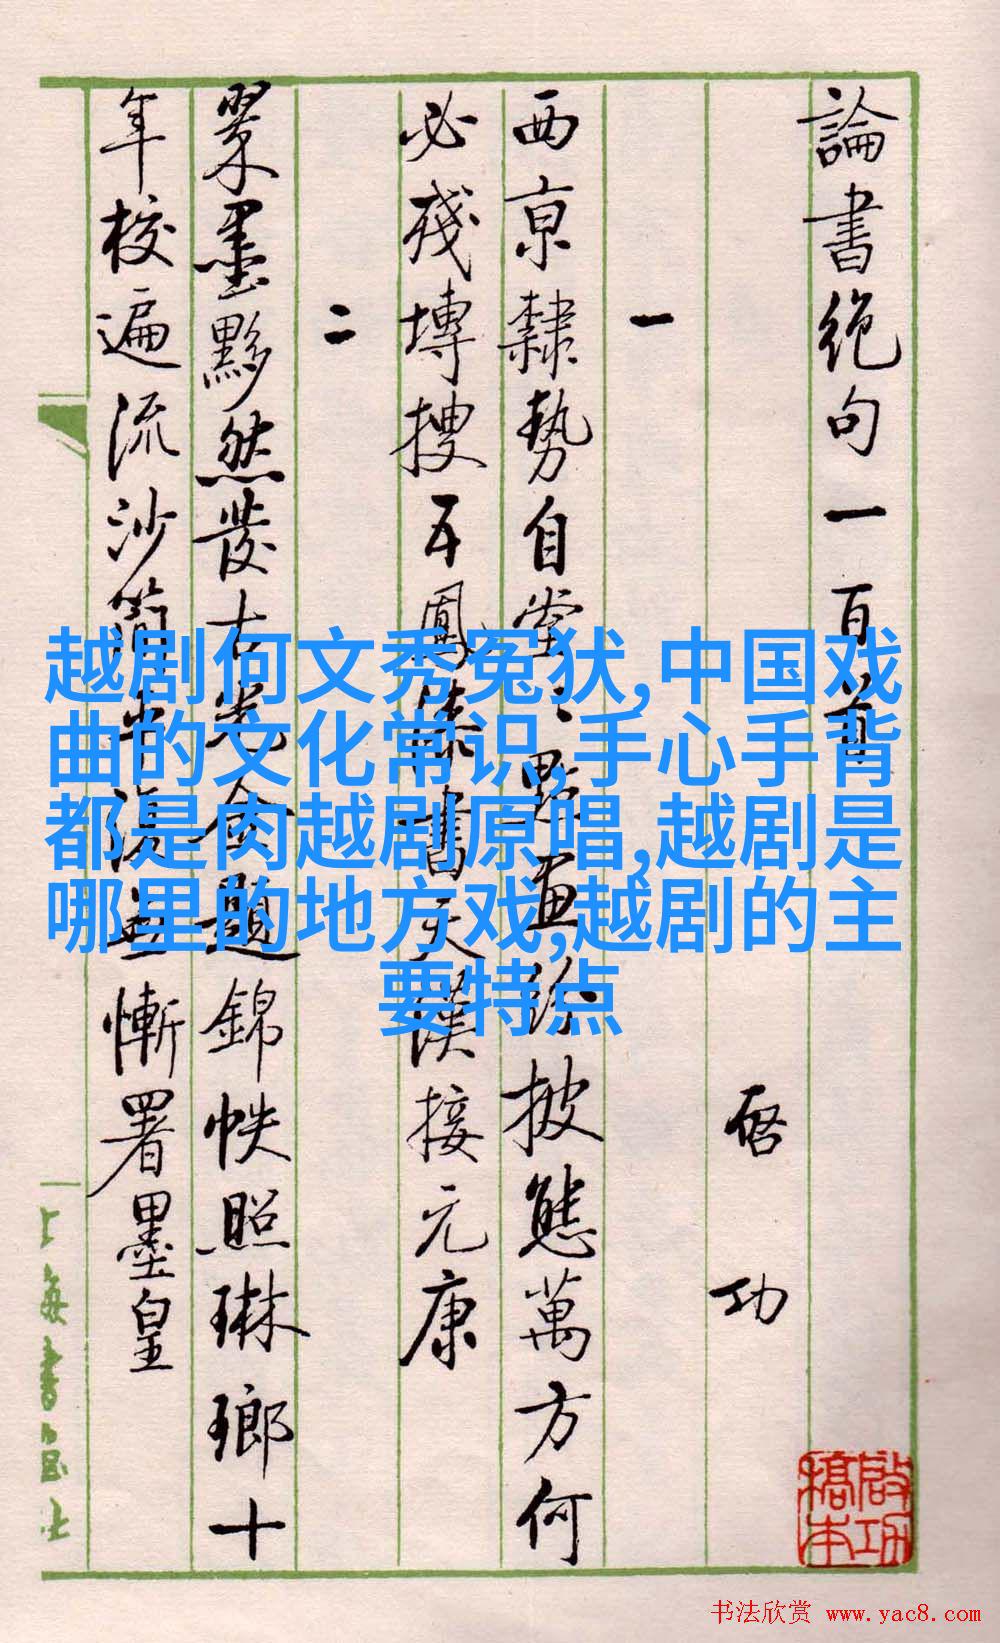 論書絶句一百首
启功
一
西京隸勢自堂々點畫紛披態萬方何
必殘塼搜五鳳漆書天漢接元康
二
翠墨黟然發古光金題錦帙照琳瑯十
年校遍流沙簡平復無慚署墨皇
越剧何文秀冤狱,中国戏
曲的文化常识,手心手背
都是肉越剧原唱,越剧是
哪里的地方戏,越剧的主
要特点
啟功
稿本
书法欣赏 www.yac8.com